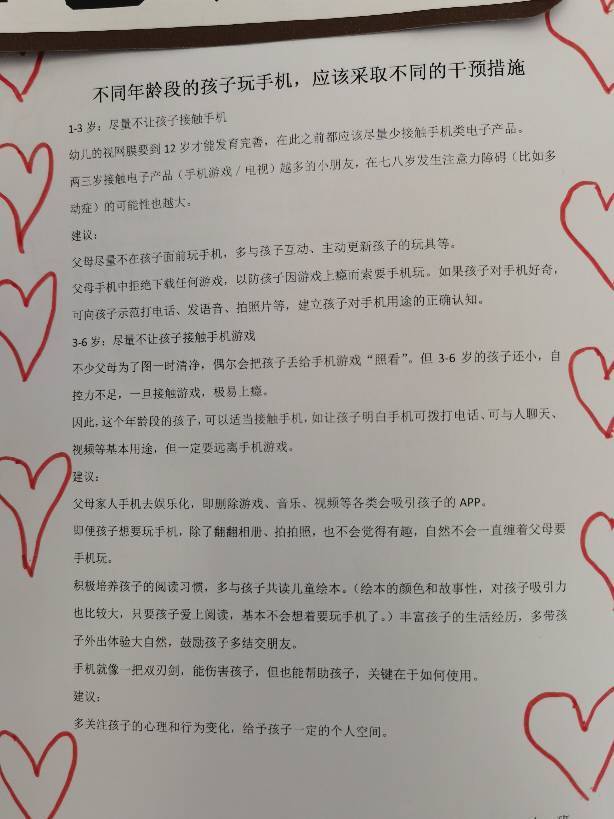 不同年龄段的孩子玩手机，应该采取不同的干预措施
1-3 岁：尽量不让孩子接触手机
幼儿的视网膜要到 12 岁才能发育完善，在此之前都应该尽量少接触手机类电子产品。
两三岁接触电子产品（手机游戏 / 电视）越多的小朋友，在七八岁发生注意力障碍（比如多
动症）的可能性也越大。
建议：
父母尽量不在孩子面前玩手机，多与孩子互动、主动更新孩子的玩具等。
父母手机中拒绝下载任何游戏，以防孩子因游戏上瘾而索要手机玩。如果孩子对手机好奇，
可向孩子示范打电话、发语音、拍照片等，建立孩子对手机用途的正确认知。
3-6 岁：尽量不让孩子接触手机游戏
不少父母为了图一时清净，偶尔会把孩子丢给手机游戏“照看”。但 3-6 岁的孩子还小，自
控力不足，一旦接触游戏，极易上瘾。
因此，这个年龄段的孩子，可以适当接触手机，如让孩子明白手机可拨打电话、可与人聊天、
视频等基本用途，但一定要远离手机游戏。
建议：
父母家人手机去娱乐化，即删除游戏、音乐、视频等各类会吸引孩子的 APP。
即便孩子想要玩手机，除了翻翻相册、拍拍照，也不会觉得有趣，自然不会一直缠着父母要
手机玩。
积极培养孩子的阅读习惯，多与孩子共读儿童绘本。（绘本的颜色和故事性，对孩子吸引力
也比较大，只要孩子爱上阅读，基本不会想着要玩手机了。）丰富孩子的生活经历，多带孩
子外出体验大自然，鼓励孩子多结交朋友。
手机就像一把双刃剑，能伤害孩子，但也能帮助孩子，关键在于如何使用。
建议：
多关注孩子的心理和行为变化，给予孩子一定的个人空间。